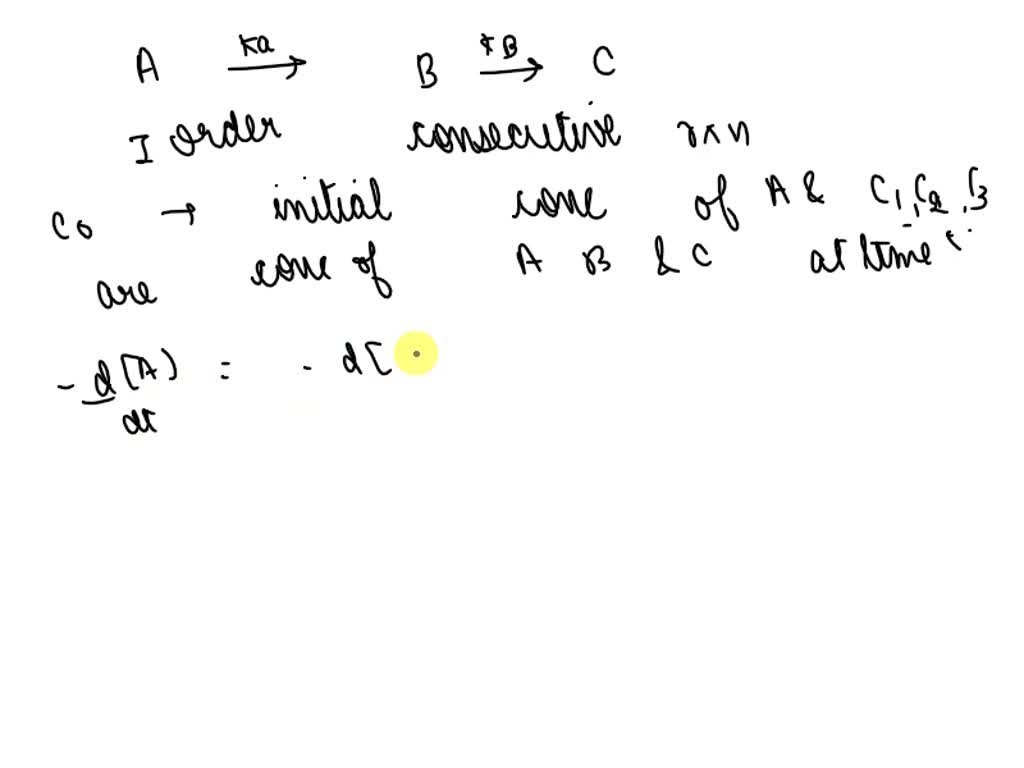 A ka → B kB → C
I order consecutive rxn
C0 → initial conc of A & C1, C2, C3
are conc of A B & C at time t.
- d[A] = - d[
dt